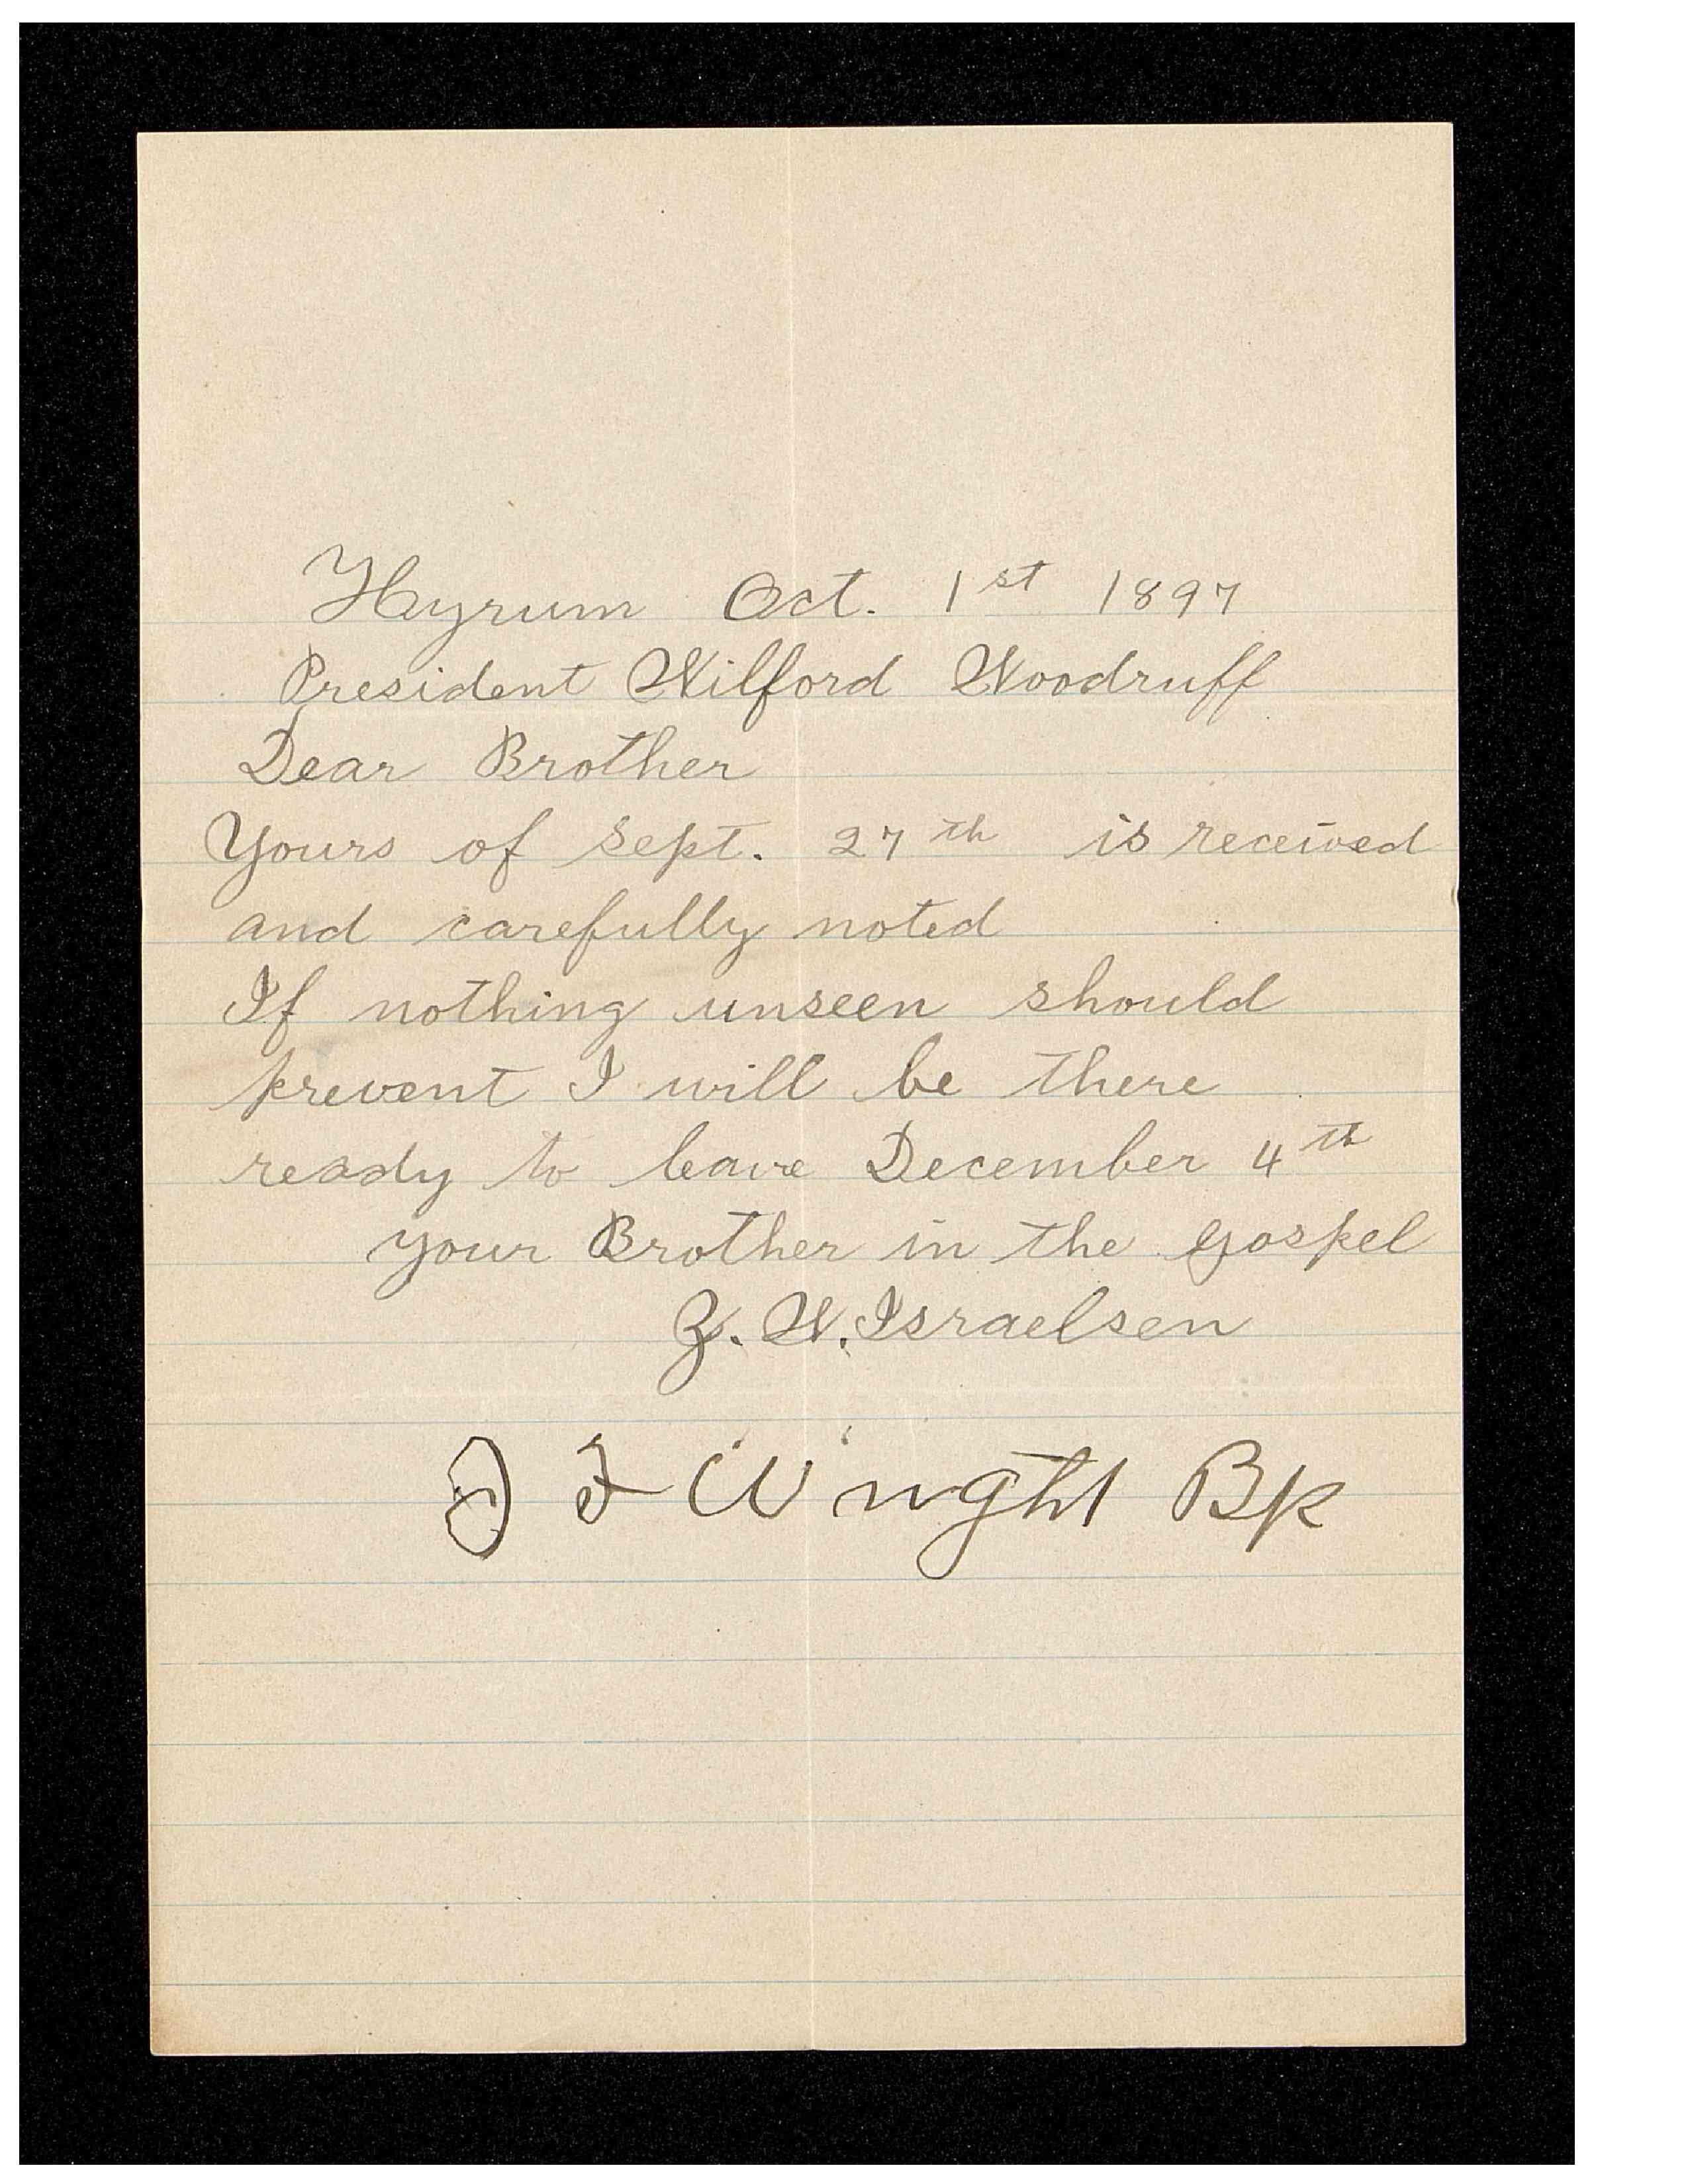 Hyrum Oct. 1st 1897
President Wilford Woodruff
Dear Brother
Yours of Sept. 27th is received
and carefully noted
If nothing unseen should
prevent I will be there
ready to leave December 4th
your Brother in the gospel
Z. W. Israelsen
Wright Bp